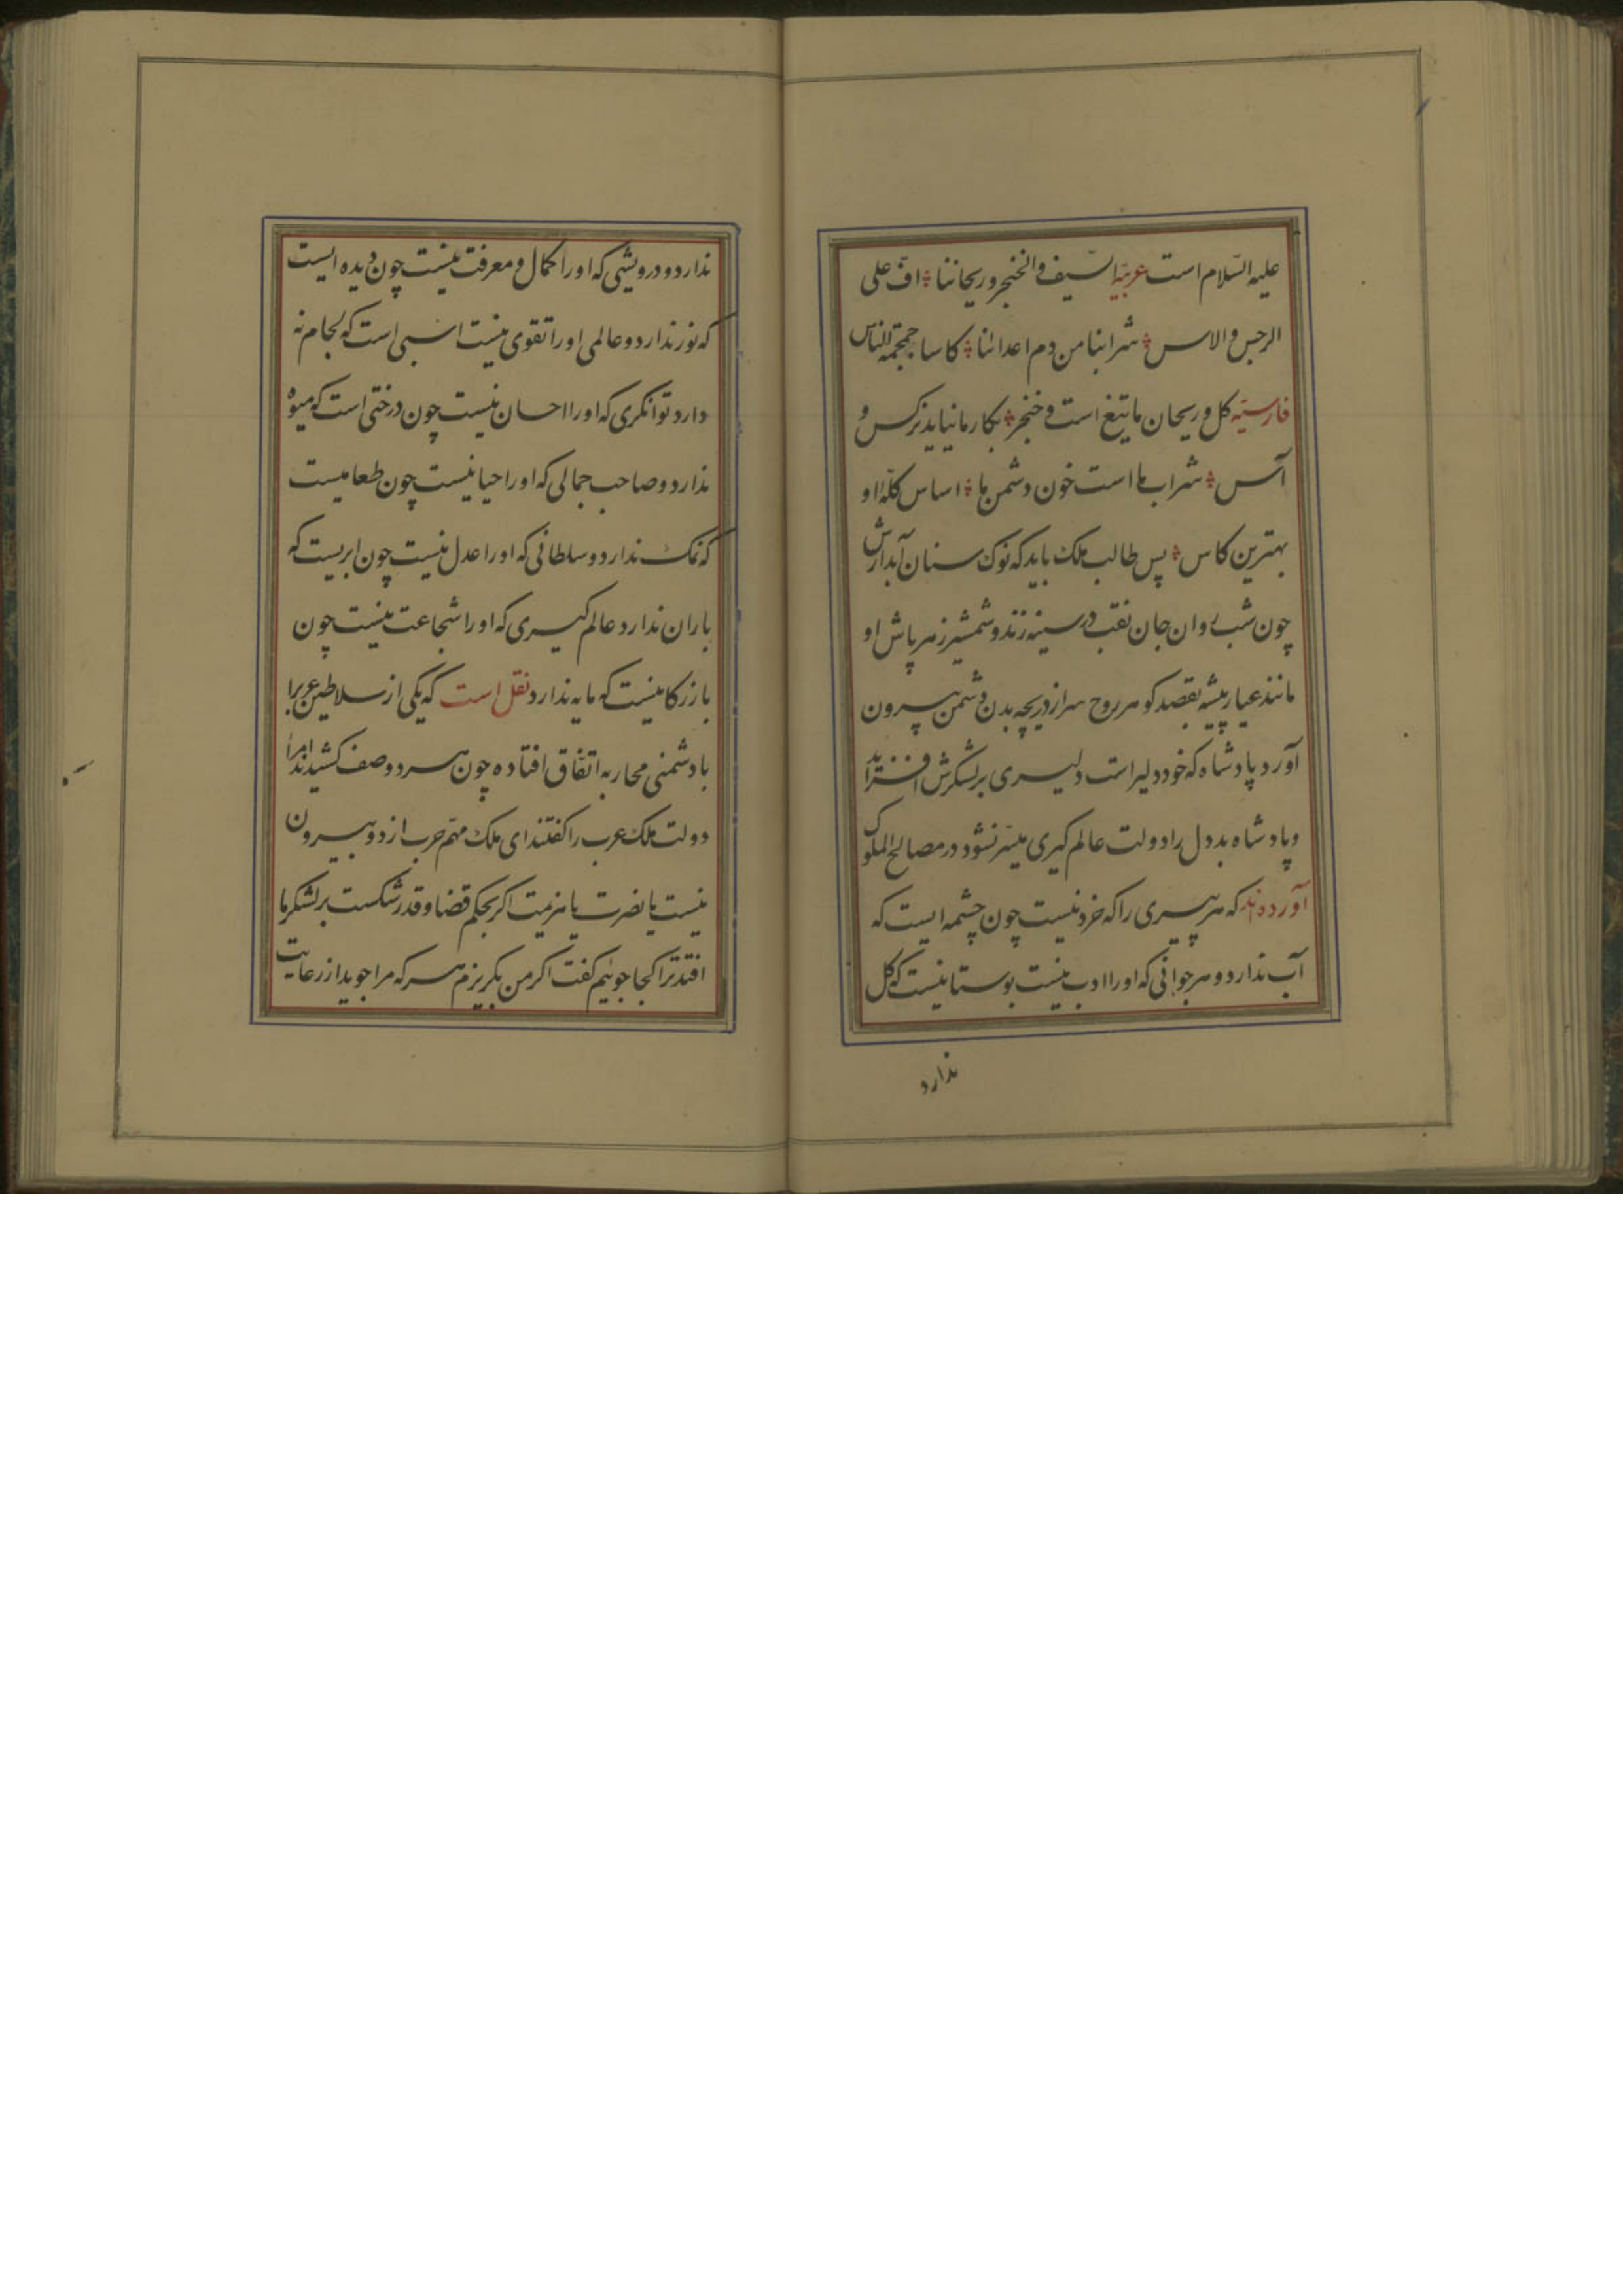 علیه السّلام است عربیّه السّیف والخنجر ریحاننا افّ علی
الرجس والاس شرابنا من دم اعدائنا کاسا جمجمة النّاس
فارسیّه کل و ریحان ما تیغ است و خنجر بکار ما نیاید نرکس و
آس شراب ما است خون دشمن ما اساس کلّه او
بهترین کاس پس طالب ملک باید که نوک سنان آبدارش
چون شب روان جان نقب در سینه زند و شمشیر زهر پاش او
مانند عیار پیشه بقصد کوهر روح سر از دریچه بدن دشمن بیرون
آورد پادشاه که خود دلیر است دلیری بر لشکرش افزاید
و پادشاه بد دل را دولت عالم کیری میسّر نشود در مصالح الملوک
آورده اند که هر پیری را که خرد نیست چون چشمه ایست که
آب ندارد و هر جوانی که او را ادب نیست بوستانیست که کل
ندارد
ندارد و درویشی که او را کمال و معرفت نیست چون دیده ایست
که نور ندارد و عالمی او را تقوی نیست اسبی است که لجام نه
دارد توانکری که او را احسان نیست چون درختی است که میوه
ندارد و صاحب جمالی که او را حیا نیست چون طعامیست
که نمک ندارد و سلطانی که او را عدل نیست چون ابریست که
باران ندارد عالم کیری که او را شجاعت نیست چون
بازرکانیست که مایه ندارد نقل است که یکی از سلاطین عرب را
با دشمنی محاربه اتّفاق افتاده چون هر دو صف کشیدند امرا
دولت ملک عرب را کفتند ای ملک مهّم حرب از دو بیرون
نیست یا نصرت یا هزیمت اکر بحکم قضا و قدر شکست بر لشکر ما
افتد ترا کجا جوئیم کفت اکر من بکریزم هر که مرا جوید از رعایت